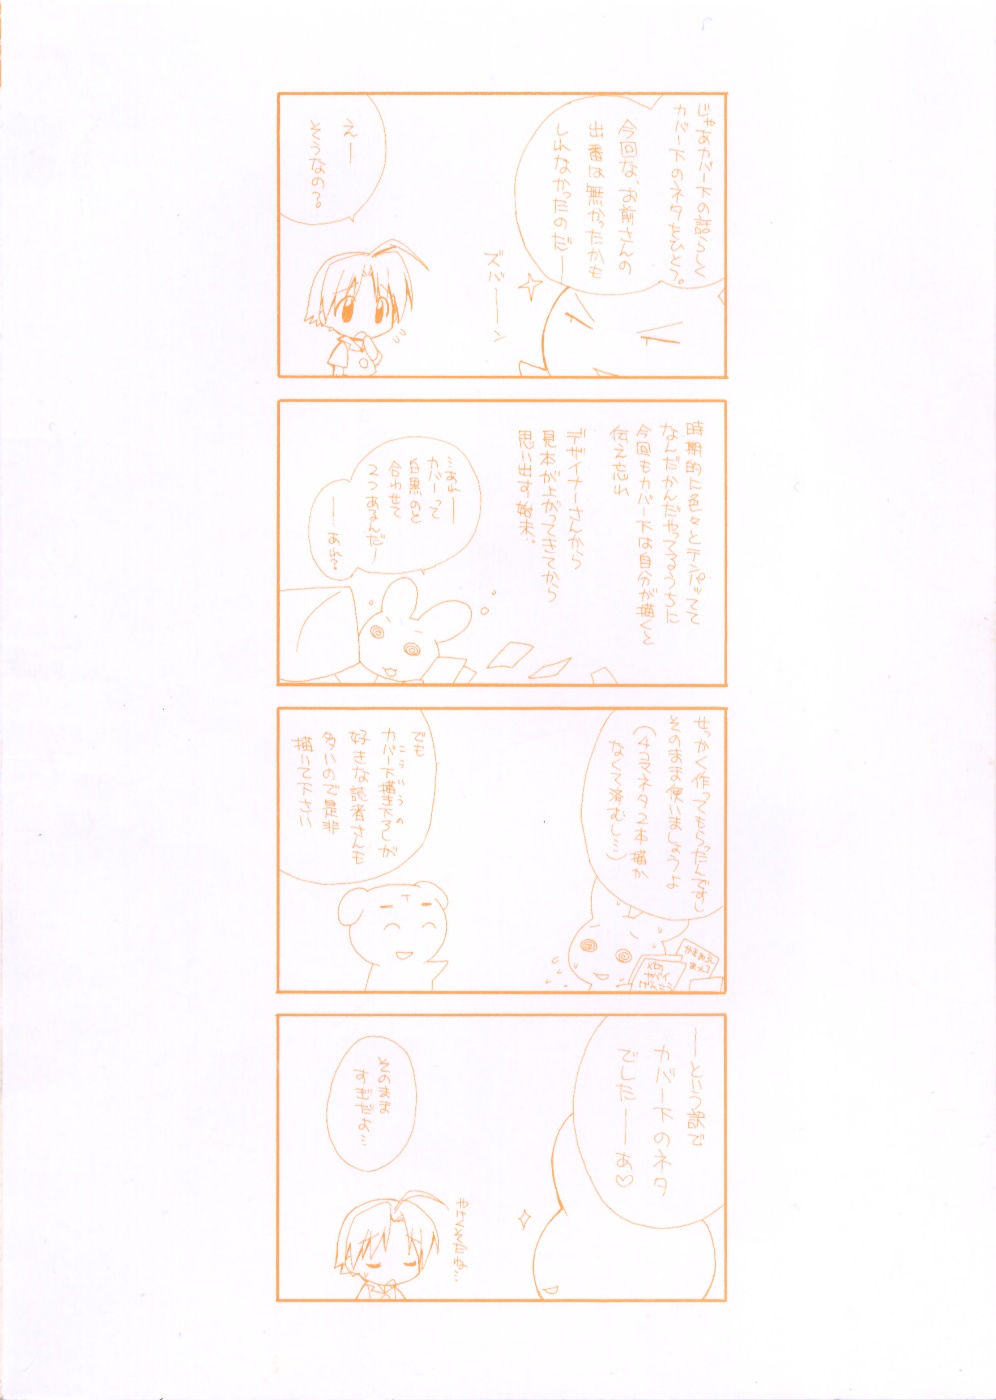 じゃあカバー下の話らしく
カバー下のネタをひとつ。
今回な、お前さんの
出番は無かったかも
しれなかったのだー
ズバーーン
えー
そうなの?。
時期的に色々とテンパッてて
なんだかんだやってるうちに
今回もカバー下は自分が描くと
伝え忘れ
デザイナーさんから
見本が上がってきてから
思い出す始末。
…あれー
カバーって
白黒のと
合わせて
2つあるんだー
ーーあれ?
せっかく作ってもらったんですし
そのまま使いましょうよ
(4コマネタ2本描か
なくて済むし…)
でも
こういうの
カバー下描き下ろしが
好きな読者さんも
多いので是非
描いて下さい
ーという訳で
カバー下のネタ
でしたーーぁ♡
そのまま
すぎだよ…
やけくそだね…